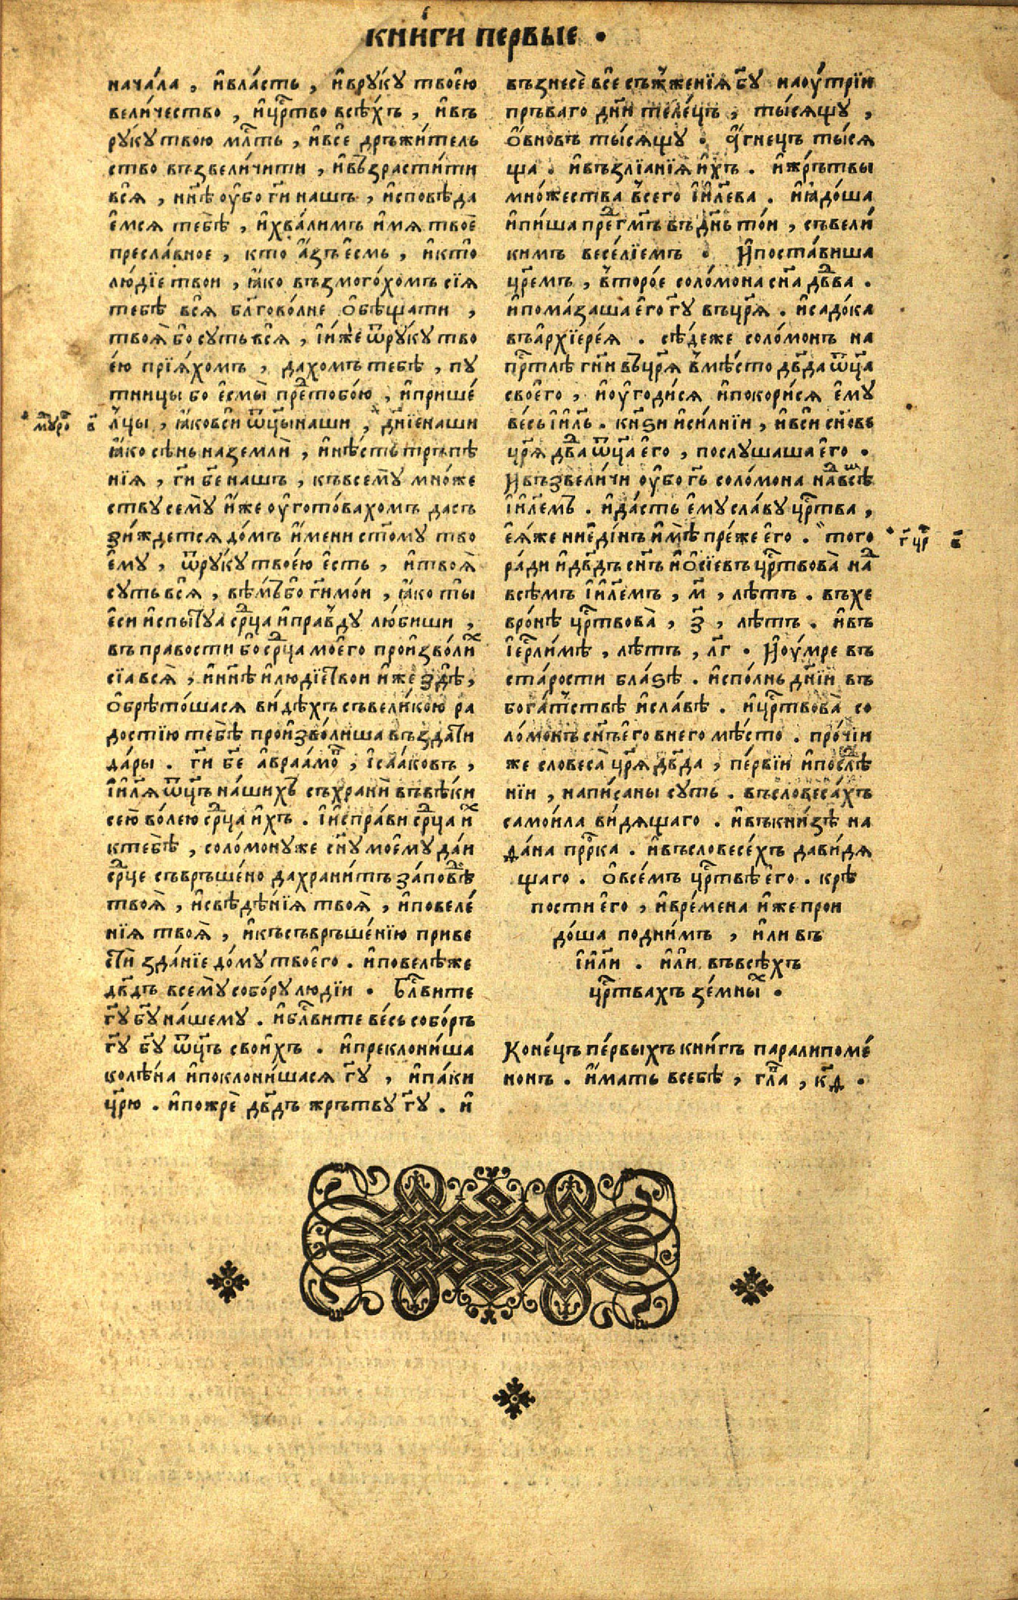 кни́ги пе́рвые •
нача́ла , и҆вла́сть , и҆вруку̀ твое́ю
вели́чество , и҆цр҃тво всѣ́хъ , и҆въ
руку̀ твою̀ мл҃ть , и҆все дръжи́тель
ство възвели́чити , и҆въ́зрасти́ти
вся̀ , нн҃ѣ ᲂу҆́бо гн҃и на́шъ , и҆сповѣ́да
е҆мся тебѣ̀ , и҆хва́лимъ и҆́мя твоѐ
пресла́вное , кто̀ а҆́зъ е҆́смь , и҆кто̀
лю́дїе твои , ꙗ҆́ко възмого́хомъ сїя̀
тебѣ̀ вся̀ бл҃гово́лне ѻ҆бѣща́ти ,
твоя̀ бо су́ть вся̀ , и҆и҆́же ѿруку̀ тво
е́ю прїя́хомъ , да́хомъ тебѣ̀ , пу
тницы бо е҆смы̀ пре́дтобо́ю , и҆прише́
лцы , ꙗ҆́ковси ѿц҃ы на́ши , дн҃їе на́ши
ꙗ҆́ко сѣ́нь на землѝ , и҆нѣ́сть тръпѣ
нїя , гн҃и бж҃е на́шъ , къ всемꙋ̀ мно́же
ству семꙋ̀ и҆́же ᲂу҆гото́вахомъ да съ
зи́ждется до́мъ и҆́мени ст҃ому тво
е҆мꙋ , ѿруку̀ твое́ю е҆́сть , и҆твоя̀
су́ть вся̀ , вѣ́мъ бо гн҃и мо́и , ꙗ҆́ко ты̀
еси и҆спыту́я ср҃ца и҆пра́вду лю́биши ,
въ пра́вости бо ср҃ца мое́го произво́ли́х
сїа вся̀ , и҆нн҃ѣ и҆лю́дїе твои и҆́же здѣ̀ ,
ѻ҆брѣто́шася ви́дѣхъ съ вели́кою ра
достїю тебѣ̀ произво́лиша въ зда́ти
да́ры . гн҃и бж҃е а҆враа́мо́въ , і҆саа́ковъ ,
і҆и҃ля ѿц҃ъ на́шихъ съхранѝ въ вѣ́ки
сею во́лею ср҃ца и҆́хъ . і҆испра́ви ср҃ца и҆́х
ктебѣ̀ , соло́мону же сн҃у моемꙋ̀ да́и
ср҃це съвръше́но да храни́тъ за́повѣ́ди
твоя̀ , и҆свѣдѣ́нїя твоя̀ , и҆повелѣ́
нїя твоя̀ , и҆къ съвръше́нїю приве
сти зда́нїе до́му твое́го . и҆повелѣ́ же
дв҃дъ все́му собо́ру лю́дїи • Бл҃вите
гд҃у бг҃у на́шему . и҆бл҃вите ве́сь собо́ръ
гд҃у бг҃у ѿц҃ъ свои́хъ . и҆преклони́ша
колѣ́на и҆поклони́шася гд҃у , и҆па́ки
цр҃ю . и҆пожрѐ дв҃дъ жръ́тву гд҃у . и҆
възнесѐ все съжже́нїя бг҃у наоу́трїи
пръ́ваго дн҃и теле́цъ , ты́сящу ,
ѻ҆́вновъ ты́сящу . а҆́гнецъ ты́ся
ща . и҆възлїа́нїя и҆́хъ . и҆жръ́твы
мно́жества всего̀ і҆и҃лева . и҆ꙗ҆до́ша
и҆пи́ша пре́д гм҃ъ въ дн҃ь то́и , съ вели́
кимъ весе́лїемъ • И҆поста́виша
цр҃емъ , второ́е соло́мона сн҃а дв҃ва .
и҆пома́заша е҆го гд҃у въ цр҃я . и҆садо́ка
въ а҆рхїере́я . сѣ́де же соло́монъ на
пр҃тлѣ гн҃и въ цр҃я вмѣ́сто дв҃да ѿц҃а
своего̀ , и҆ᲂу҆годи́ся и҆покори́ся е҆мꙋ
ве́сь і҆и҃ль . кн҃ѕи и҆си́лнїи , и҆вси сн҃ове
цр҃я дв҃ва ѿц҃а е҆го , послу́шаша е҆го •
И҆възвели́чи ᲂу҆́бо гд҃ь соло́мона надо всѣ̀м
і҆и҃лемъ . и҆да́сть е҆мꙋ сла́ву цр҃тва ,
ея́же ниеди́нъ имѣ̀ пре́же е҆го . того̀
ра́ди и҆дв҃дъ сн҃ъ и҆ѻ҆сїевъ цр҃твова̀ над
всѣ́мъ і҆и҃лемъ , м҃ , лѣ́тъ . въ хе
вро́нѣ цр҃твова̀ , з҃ , лѣ́тъ . и҆въ
і҆ер҃ли́мѣ , лѣ́тъ , л҃г • И҆ᲂу҆́мре въ
ста́рости бла́ѕѣ . и҆спо́лнь дн҃їи въ
бога́тствѣ и҆сла́вѣ . и҆цр҃твова̀ со
ло́монъ сн҃ъ е҆го в него мѣ́сто . про́чїи
же словеса̀ цр҃я дв҃да , пе́рвїи и҆послѣ́д
нїи , напи́саны су́ть . въ словеса́хъ
самои́ла ви́дящаго . и҆въ кни́зѣ на
ѳа́на прⷪ҇рка . и҆въ словесе́хъ дави́дя
щаго . ѻ҆ все́мъ цр҃твѣ е҆го . крѣ́
пости е҆го , и҆вре́мена и҆́же прои
до́ша под ни́мъ , и҆́ли въ
і҆и҃ли . и҆́ли въ всѣ́хъ
цр҃твахъ зе́мных •
Коне́цъ пе́рвыхъ кни́гъ паралипоме́
нонъ . и҆́мать в себѣ̀ , гла҃ , к҃ѳ •